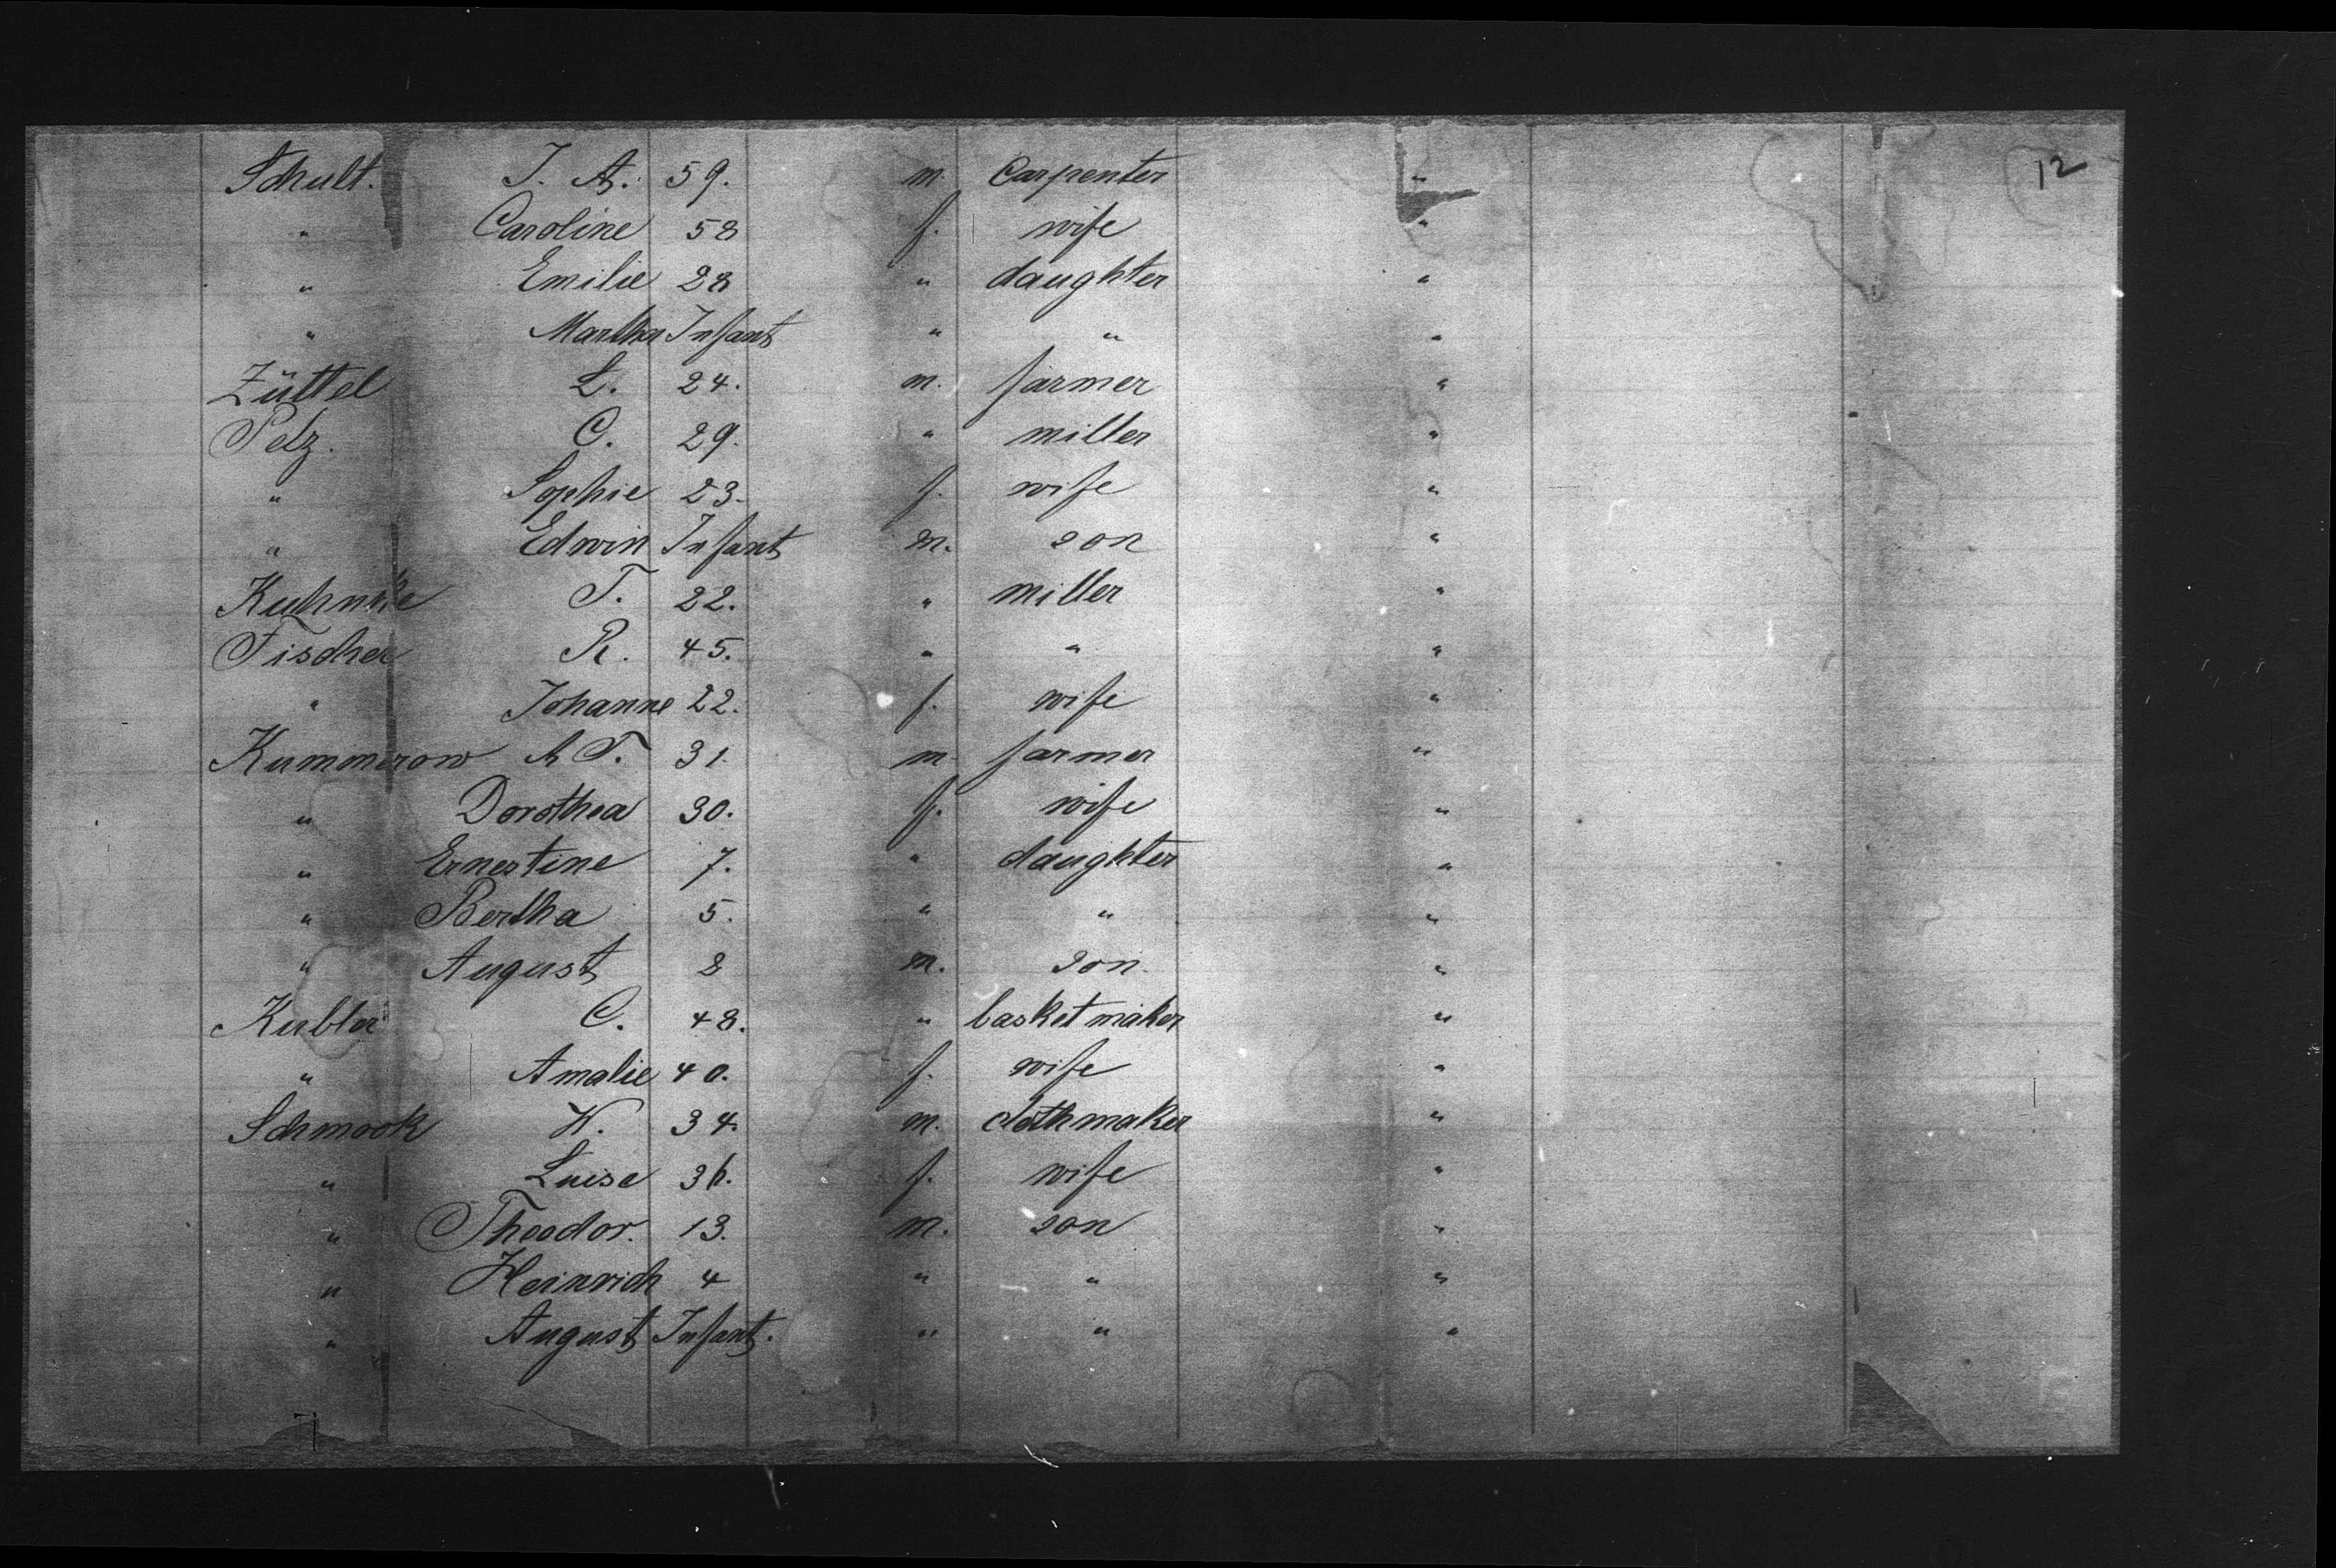 12
Schult. J. A. 59. m. Carpenter "
" Caroline 58 f. wife "
" Emilie 28 " daughter "
" Martha Infant " " "
Züttel L. 24. m. farmer "
Pelz. C. 29. " miller "
" Sophie 23. f. wife "
" Edwin Infant m. son "
Kuhnke T. 22. " miller "
Fischer R. 45. " " "
" Johanne 22. f. wife "
Kummerow A T. 31. m farmer "
" Dorothea 30. f. wife "
" Ernestine 7. " daughter "
" Bertha 5. " " "
" August 8 m. son. "
Kubler C. 48. " basket maker "
" Amalie 40. f. wife "
Schmook W. 34. m. clothmaker "
" Luise 36. f. wife "
" Theodor. 13. m. son "
" Heinrich 4 " " "
" August Infant. " " "